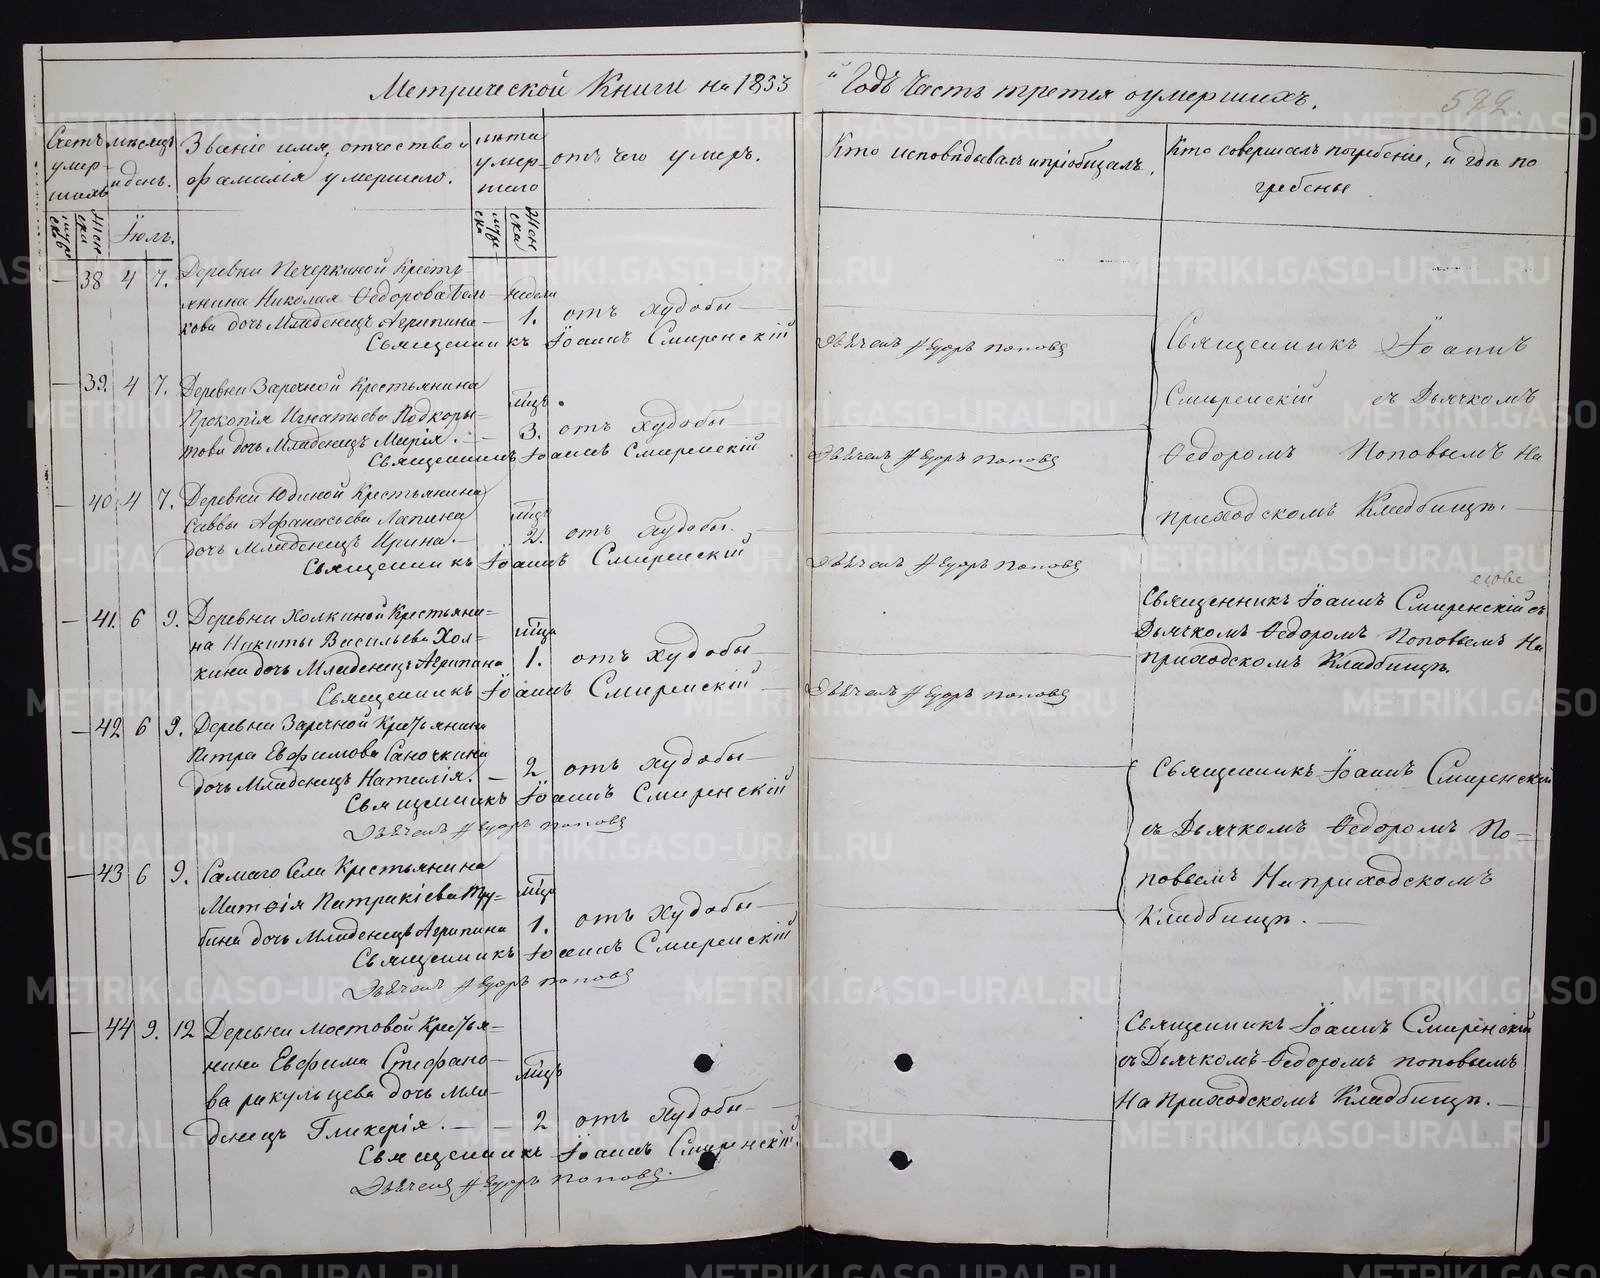 Метрической Книги на 1853
й Годъ Часть третья о умершихъ.
592.
Счетъ умер-шихъ
мѣсяцъ и день.
Званіе имя, отчество и
фамилія умершего.
лѣта умер-шего
отъ чего умеръ.
Кто исповѣдывалъ и пріобщалъ.
Кто совершалъ погребеніе, и гдѣ по
гребены
муже ска
Жен ски
Іюль.
муже ска
Жен ска
38 4 7. Деревни Печеркиной Кресть
янина Николая Ѳедорова Вель недели
кова дочь Младенецъ Агрипина 1. отъ худобы
Священникъ Іоаннъ Смиренскій
Дьячекъ Ѳедоръ Поповъ
39. 4 7. Деревни Заречной Крестьянина
Прокопія Игнатьева Подкоры= мѣцъ
това дочь Младенецъ Марія. 3. отъ худобы
Священникъ Іоаннъ Смиренскій
Дьячекъ Ѳедоръ Поповъ
Священникъ Іоаннъ
Смиренскій съ Дьячкомъ
Ѳедоромъ Поповымъ На
приходскомъ Кладбищѣ.
40 4 7. Деревни Юдиной Крестьянина
Саввы Афанасьева Лапина мѣца
дочь Младенецъ Ирина. 2. отъ худобы.
Священникъ Іоаннъ Смиренскій
Дьячекъ Ѳедоръ Поповъ
41. 6 9. Деревни Холкиной Крестьяни=
на Никиты Васильева Хол= мѣца
кина дочь Младенецъ Агрипина 1. отъ худобы
Священникъ Іоаннъ Смиренскій
Дьячекъ Ѳедоръ Поповъ
Священникъ Іоаннъ Смиренскій съ
Дьячкомъ Ѳедоромъ Поповымъ На
приходскомъ Кладбищѣ.
42 6 9. Деревни Заречной Крестьянина
Петра Евфимова Саночкина
дочь Младенецъ Наталія. 2 отъ худобы
Священникъ Іоаннъ Смиренскій
Дьячекъ Ѳедоръ Поповъ
43 6 9. Самаго Села Крестьянина
Матѳія Патракіева Тру= мѣца
бина дочь Младенецъ Агрипина 1. отъ худобы
Священникъ Іоаннъ Смиренскій
Дьячекъ Ѳедоръ Поповъ
Священникъ Іоаннъ Смиренскій
съ Дьячкомъ Ѳедоромъ По=
повымъ На приходскомъ
Кладбищѣ.
44 9. 12 Деревни Мостовой Крестья=
нина Евфима Стефано= мѣцъ
ва ракульцева дочь Мла=
денецъ Гликерія. 2 отъ худобы
Священникъ Іоаннъ Смиренскій.
Дьячекъ Ѳедоръ Поповъ.
Священникъ Іоаннъ Смиренскій
съ Дьячкомъ Ѳедоромъ поповымъ
На Приходскомъ Кладбищѣ.
METRIKI.GASO-URAL.RU